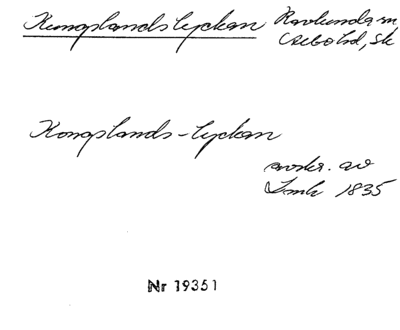 Kungslandslyckan Ravlunda, sn
Albo hd, Sk
Kongslands-lyckan
avskr. av
Lmk 1835
Nr 19351